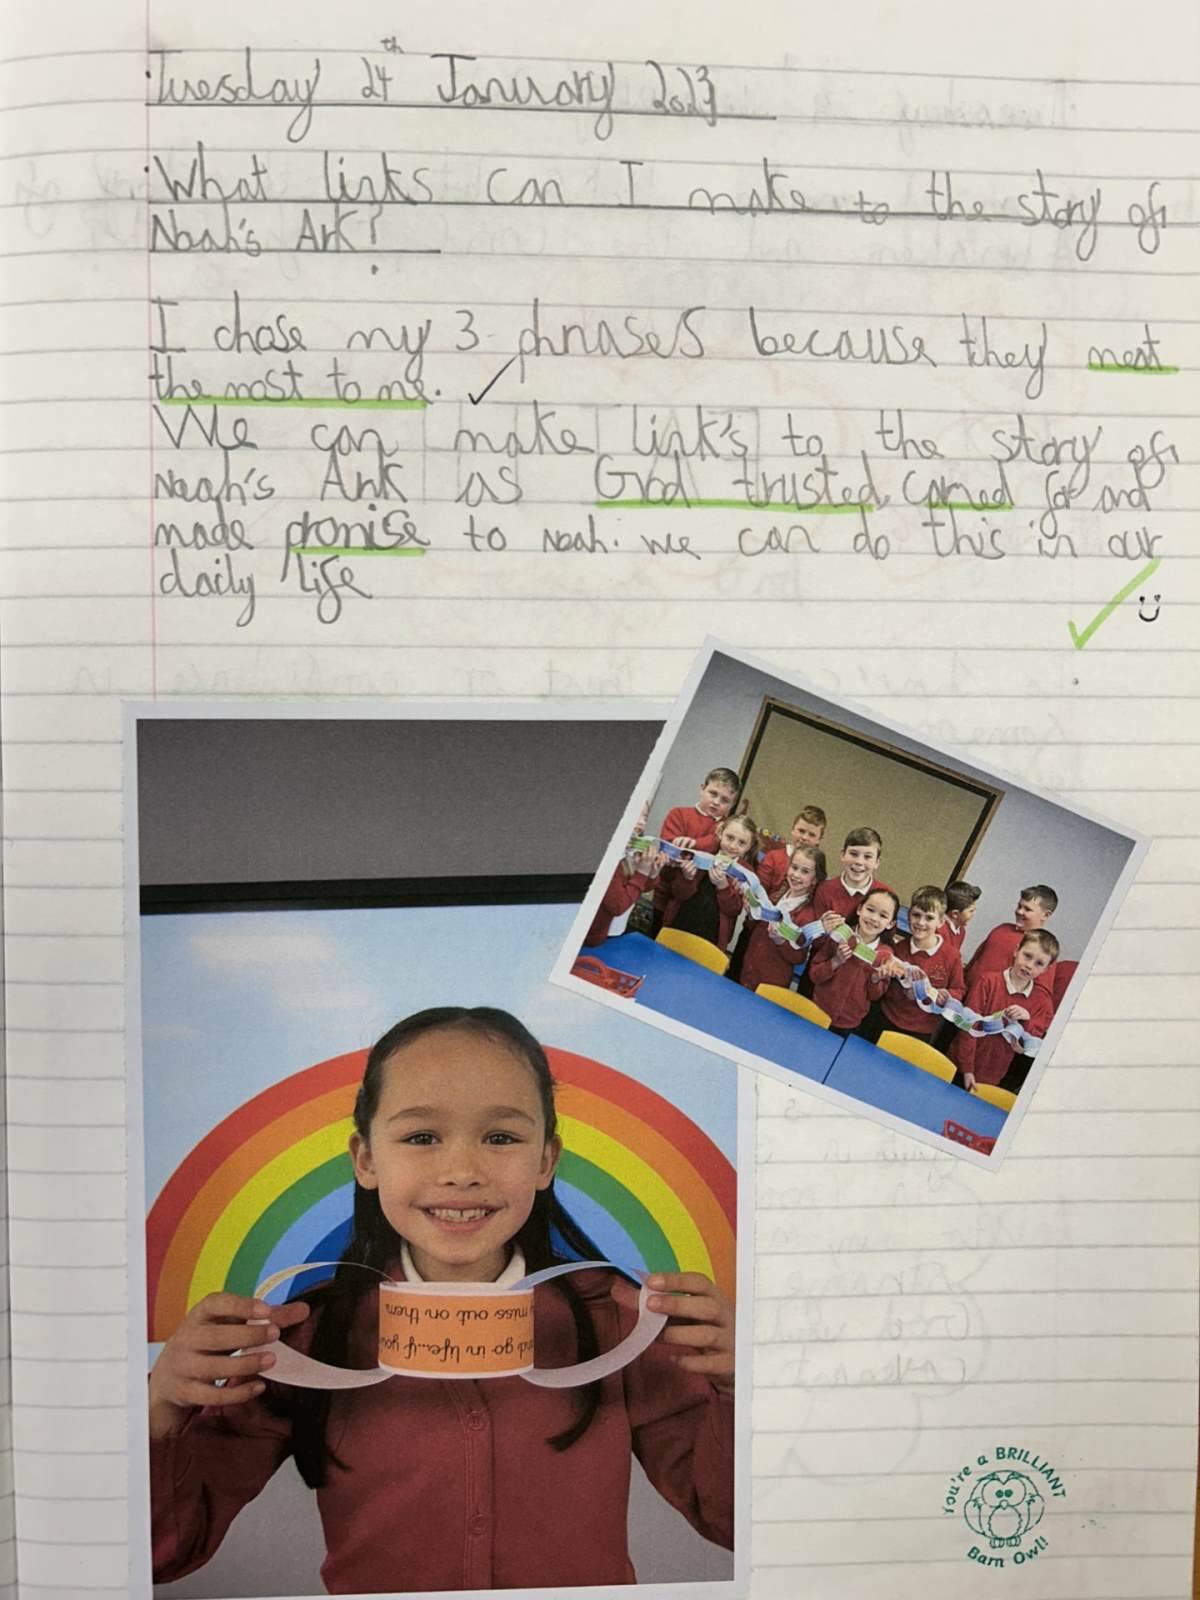 Tuesday 24th January 2023
What links can I make to the story of
Noah's Ark?
I chose my 3 phrases because they meat
the most to me.
We can make link's to the story of
Noah's Ark as God trusted, cared for and
made promise to Noah. we can do this in our
daily life
miss out on them
and go in life...if you
You're a BRILLIANT
Barn Owl!